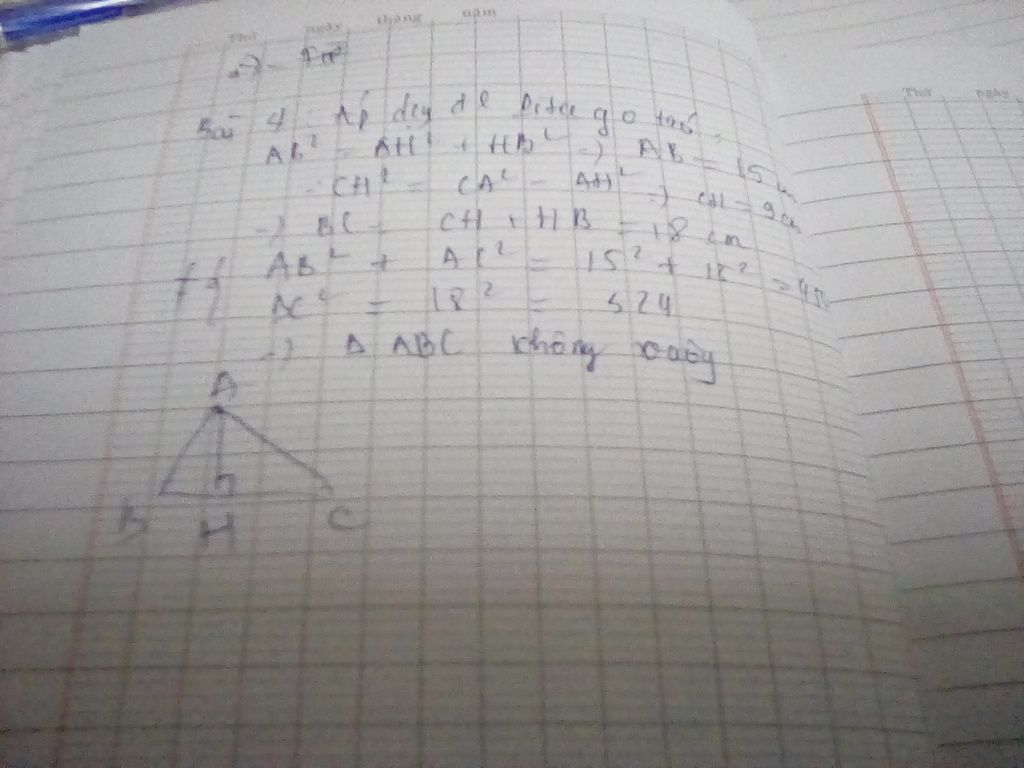 THỨ NGÀY THÁNG NĂM
Bài 4: Áp dụng đ l Pitago ta có
AB² = AH² + HB² => AB = 15 cm
CH² = CA² - AH² => CH = 9 cm
=> BC = CH + HB = 18 cm
AB² + AC² = 15² + = 450
= 18² = 324
=> Δ ABC không vuông
A
B H C
THỨ NGÀY